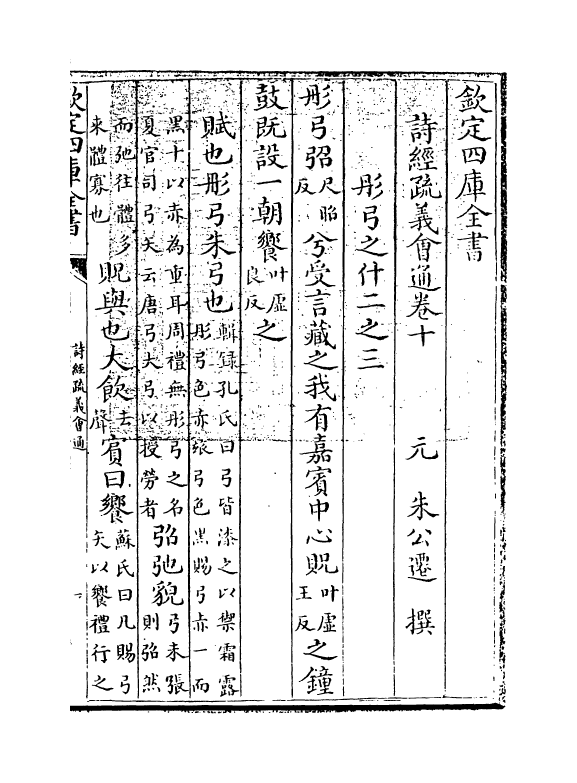 欽定四庫全書
詩經疏義會通卷十　元　朱公遷　撰
彤弓之什二之三
彤弓弨尺昭反兮受言藏之我有嘉賓中心貺叶虛王反之鐘
鼓既設一朝饗叶虛良反之
賦也彤弓朱弓也輯録孔氏曰弓皆漆之以禦霜露彤弓色赤玈弓色黑賜弓赤一而
黑十以赤為重耳周禮無彤弓之名夏官司弓矢云唐弓大弓以授勞者弨弛貌弓未張則弨然
而弛往體多來體寡也貺與也大飲去聲賓曰饗蘇氏曰凡賜弓矢以饗禮行之
欽定四庫全書
詩經疏義會通
一